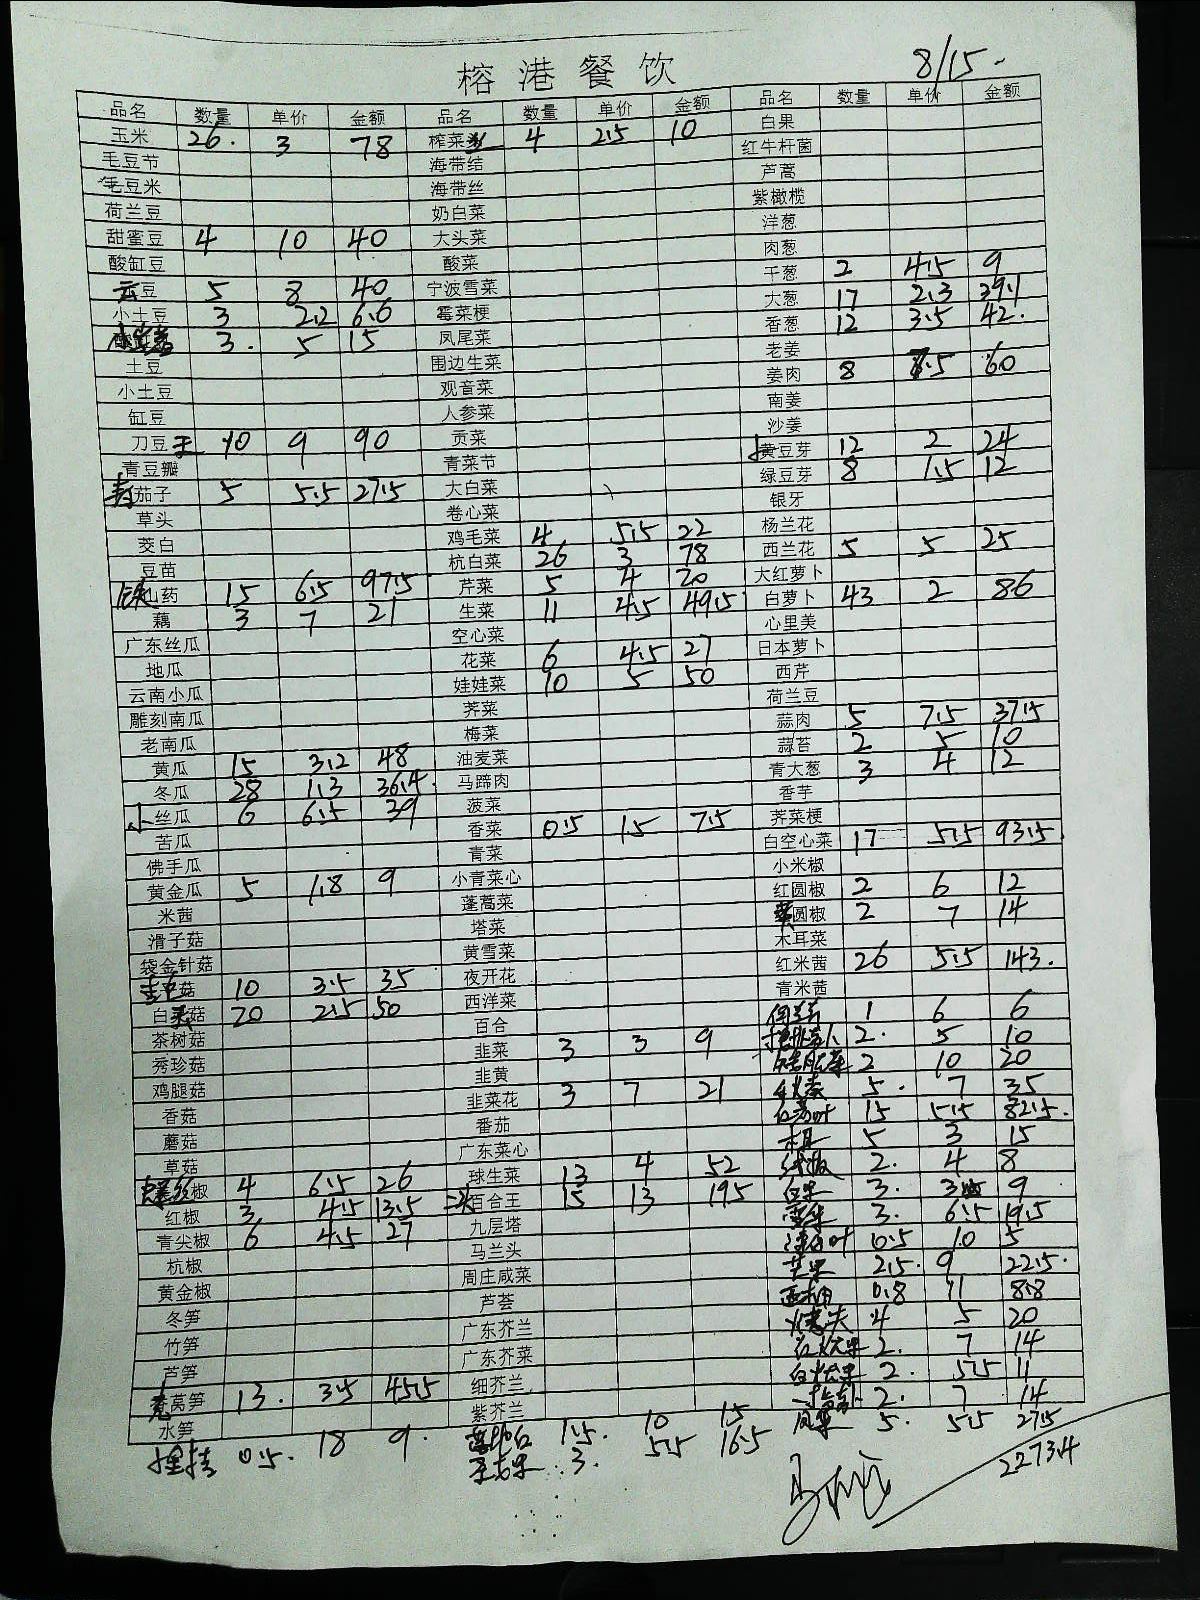 榕港餐饮
8/15.
品名 数量 单价 金额 品名 数量 单价 金额 品名 数量 单价 金额
玉米 26. 3 78 榨菜丝 4 2.5 10 白果
毛豆节 海带结 红牛杆菌
毛豆米 海带丝 芦蒿
荷兰豆 奶白菜 紫橄榄
甜蜜豆 4 10 40 大头菜 洋葱
酸缸豆 酸菜 肉葱
云豆 5 8 40 宁波雪菜 干葱 2 4.5 9
小土豆 3 2.2 6.6 霉菜梗 大葱 17 2.3 39.1
3. 5 15 凤尾菜 香葱 12 3.5 42.
土豆 围边生菜 老姜
小土豆 观音菜 姜肉 8 7.5 60
缸豆 人参菜 南姜
刀豆王 10 9 90 贡菜 沙姜
青豆瓣 青菜节 黄豆芽 12 2 24
茄子 5 5.5 27.5 大白菜 绿豆芽 8 1.5 12
草头 卷心菜 银牙
茭白 鸡毛菜 4 5.5 22 杨兰花
豆苗 杭白菜 26 3 78 西兰花 5 5 25
铁山药 15 6.5 97.5 芹菜 5 4 20 大红萝卜
藕 3 7 21 生菜 11 4.5 49.5 白萝卜 43 2 86
广东丝瓜 空心菜 心里美
地瓜 花菜 6 4.5 27 日本萝卜
云南小瓜 娃娃菜 10 5 50 西芹
雕刻南瓜 荠菜 荷兰豆
老南瓜 梅菜 蒜肉 5 7.5 37.5
黄瓜 15 3.2 48 油麦菜 蒜苔 2 5 10
冬瓜 28 1.3 36.4 马蹄肉 青大葱 3 4 12
小丝瓜 6 6.5 39 菠菜 香芋
苦瓜 香菜 0.5 15 7.5 荠菜梗
佛手瓜 青菜 白空心菜 17 5.5 93.5
黄金瓜 5 1.8 9 小青菜心 小米椒
米茜 蓬蒿菜 红圆椒 2 6 12
滑子菇 塔菜 圆椒 2 7 14
袋金针菇 黄雪菜 木耳菜
菇 10 3.5 35 夜开花 红米茜 26 5.5 143.
白灵菇 20 2.5 50 西洋菜 青米茜
茶树菇 百合 1 6 6
秀珍菇 韭菜 3 3 9 2. 5 10
鸡腿菇 韭黄 2 10 20
香菇 韭菜花 3 7 21 5. 7 35
蘑菇 番茄 15 5.5 82.5.
草菇 广东菜心 木耳 5 3 15
椒 4 6.5 26 球生菜 13 4 52 2. 4 8
红椒 3 4.5 13.5 二头百合王 15 13 195 白果 3. 3 9
青尖椒 6 4.5 27 九层塔 3. 6.5 19.5
杭椒 马兰头 0.5 10 5
黄金椒 周庄咸菜 芒果 2.5. 9 22.5.
冬笋 芦荟 西柚 0.8 11 8.8
竹笋 广东芥兰 4 5 20
芦笋 广东芥菜 2. 7 14
莴笋 13. 3.5 45.5 细芥兰 2. 5.5 11
水笋 紫芥兰 2. 7 14
0.5. 18 9. 1.5. 10 15 凤梨 5. 5.5 27.5
3. 5.5 16.5
2273.4